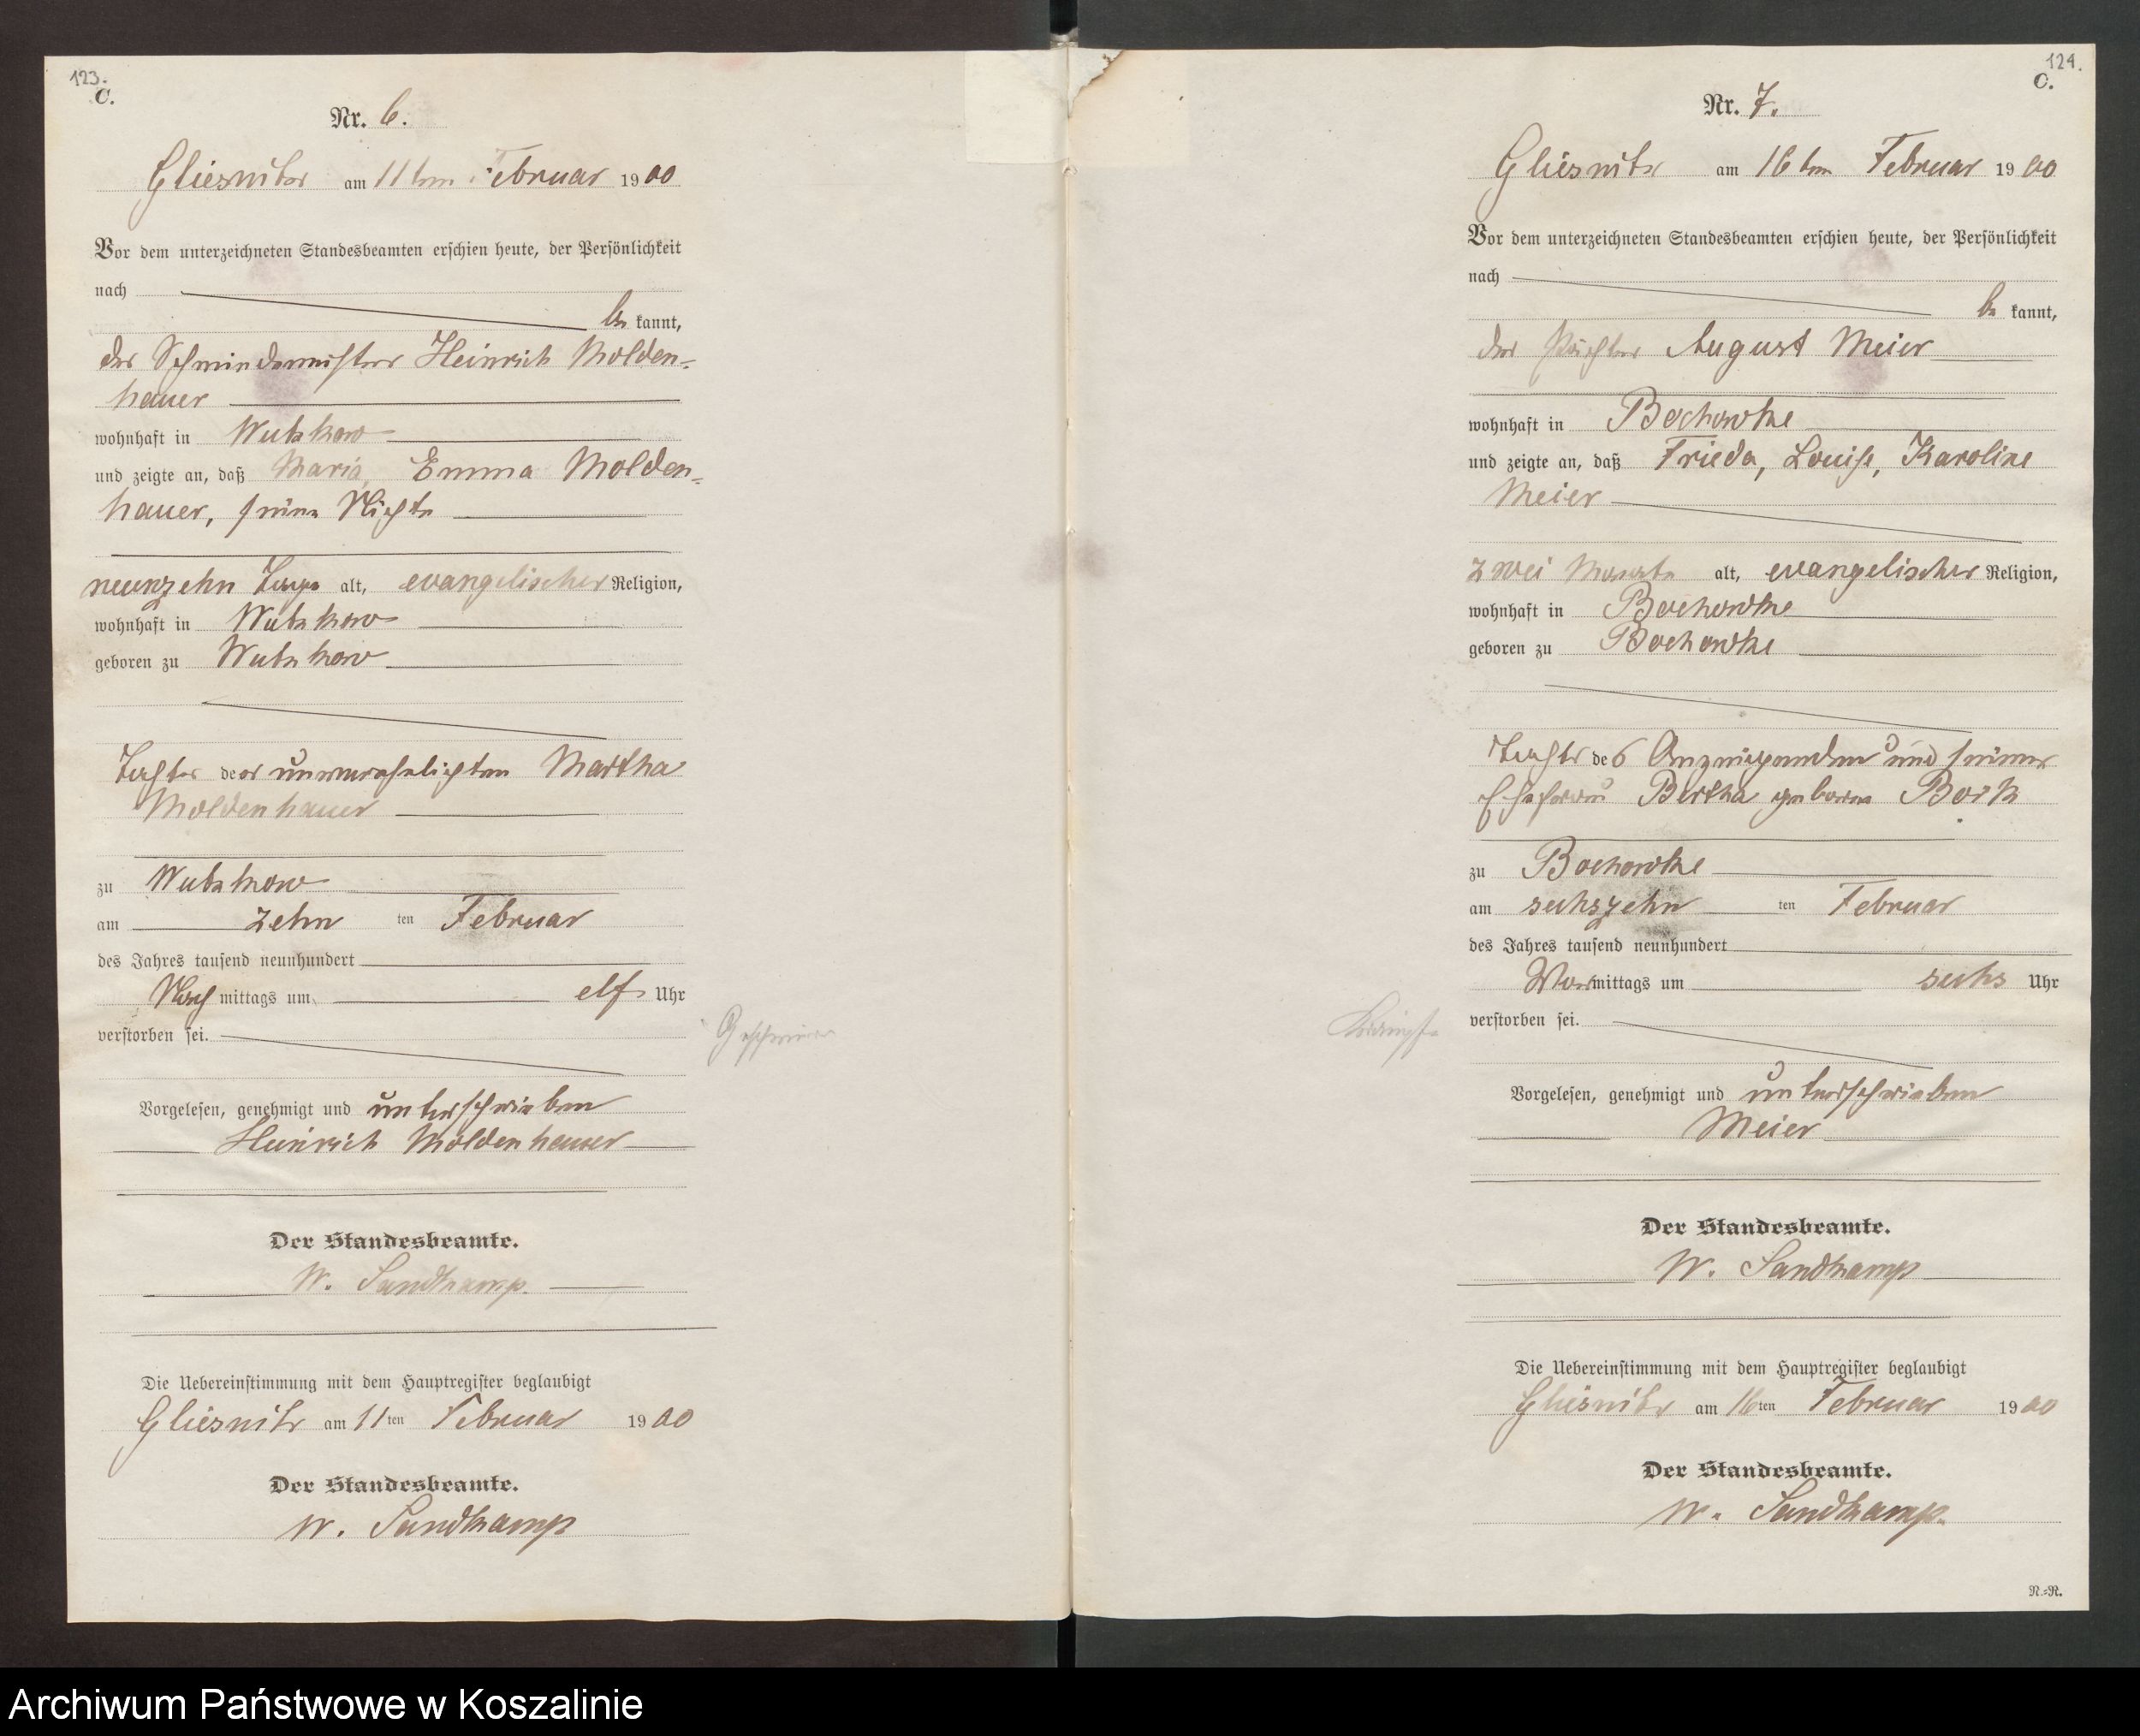 123.
C.
Nr. 6.
Gliesnitz am 11ten Februar 1900
Vor dem unterzeichneten Standesbeamten erschien heute, der Persönlichkeit
nach
be kannt,
der Schmiedemeister Heinrich Molden=
hauer
wohnhaft in Wutzkow
und zeigte an, daß Maria, Emma Molden=
hauer, seine Nichte
neunzehn Tage alt, evangelischer Religion,
wohnhaft in Wutzkow
geboren zu Wutzkow
Tochter der unverehelichten Martha
Moldenhauer
zu Wutzkow
am zehn ten Februar
des Jahres tausend neunhundert
Nachmittags um elf Uhr
verstorben sei.
Vorgelesen, genehmigt und unterschrieben
Heinrich Moldenhauer
Der Standesbeamte.
W. Sandkamp.
Die Uebereinstimmung mit dem Hauptregister beglaubigt
Gliesnitz am 11ten Februar 1900
Der Standesbeamte.
W. Sandkamp
124.
C.
Nr. 7.
Gliesnitz am 16ten Februar 1900
Vor dem unterzeichneten Standesbeamten erschien heute, der Persönlichkeit
nach
be kannt,
der Pächter August Meier
wohnhaft in Bochowke
und zeigte an, daß Frieda, Louise, Karoline
Meier
zwei Monate alt, evangelischer Religion,
wohnhaft in Bochowke
geboren zu Bochowke
Tochter des Anzeigenden und seiner
Ehefrau Bertha geborne Bork
zu Bochowke
am sechszehn ten Februar
des Jahres tausend neunhundert
Vormittags um sechs Uhr
Krämpfe
verstorben sei.
Vorgelesen, genehmigt und unterschrieben
Meier
Der Standesbeamte.
W. Sandkamp
Die Uebereinstimmung mit dem Hauptregister beglaubigt
Gliesnitz am 16ten Februar 1900
Der Standesbeamte.
W. Sandkamp.
N.=R.
Archiwum Państwowe w Koszalinie